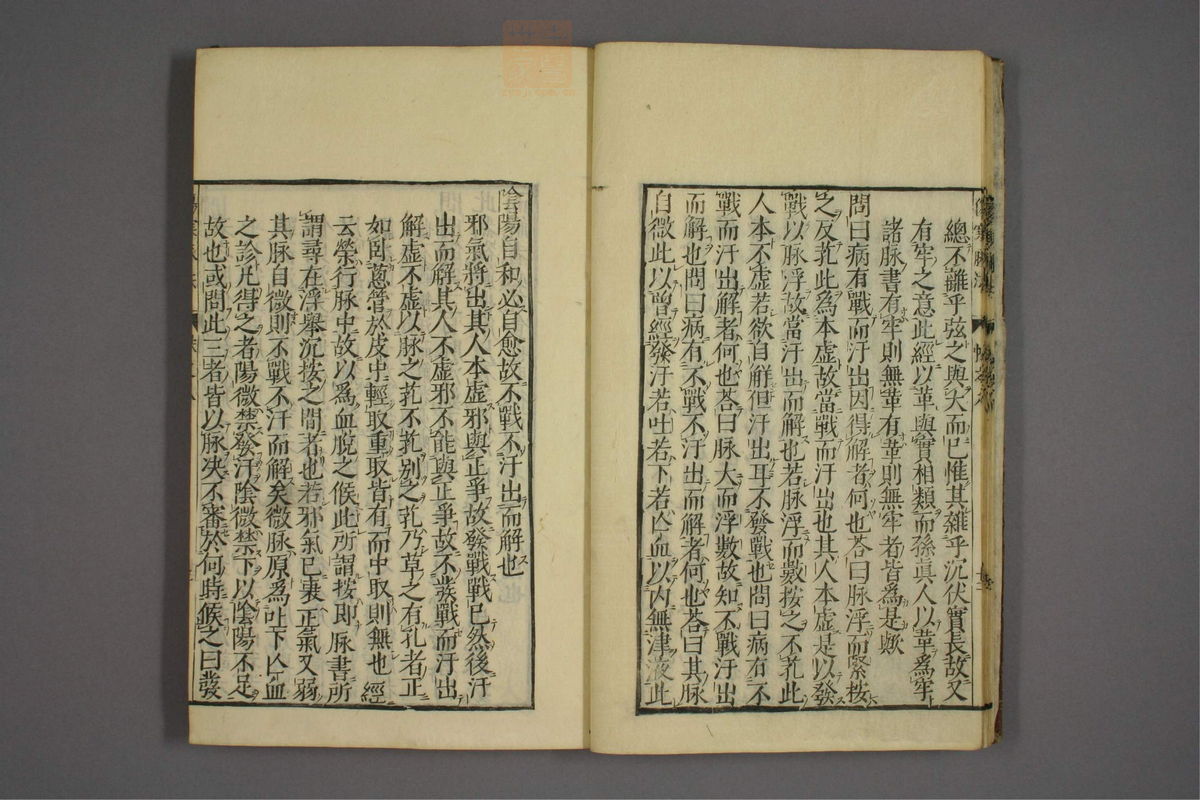 總不離乎弦之與大而已惟其雜乎沉伏實長故又
有牢之意此經以革與實相類而孫真人以革爲牢
諸脉書有牢則無革有革則無牢者皆爲是歟
問曰病有戰而汗出因得解者何也荅曰脉浮而緊按
之反芤此爲本虚故當戰而汗出也其人本虚是以發
戰以脉浮故當汗出而解也若脉浮而數按之不芤此
人本不虚若欲自解但汗出耳不發戰也問曰病有不
戰而汗出解者何也荅曰脉大而浮數故知不戰汗出
而解也問曰病有不戰不汗出而解者何也荅曰其脉
自微此以曾經發汗若吐若下若亾血以内無津液此
陰陽自和必自愈故不戰不汗出而解也
邪氣將出其人本虚邪與正爭故發戰戰已然後汗
出而解其人不虚邪不能與正爭故不發戰而汗出
解虚不虚以脉之芤不芤别之芤乃草之有孔者正
如卧蔥管於皮中輕取重取皆有而中取則無也經
云榮行脉中故以爲血脱之候此所謂按即脉書所
謂尋在浮舉沉按之間者也若邪氣已衰正氣又弱
其脉自微則不戰不汗而解矣微脉原爲吐下亾血
之診凡得之者陽微禁發汗陰微禁下以陰陽不足
故也或問此三者皆以脉决不審於何時候之曰發